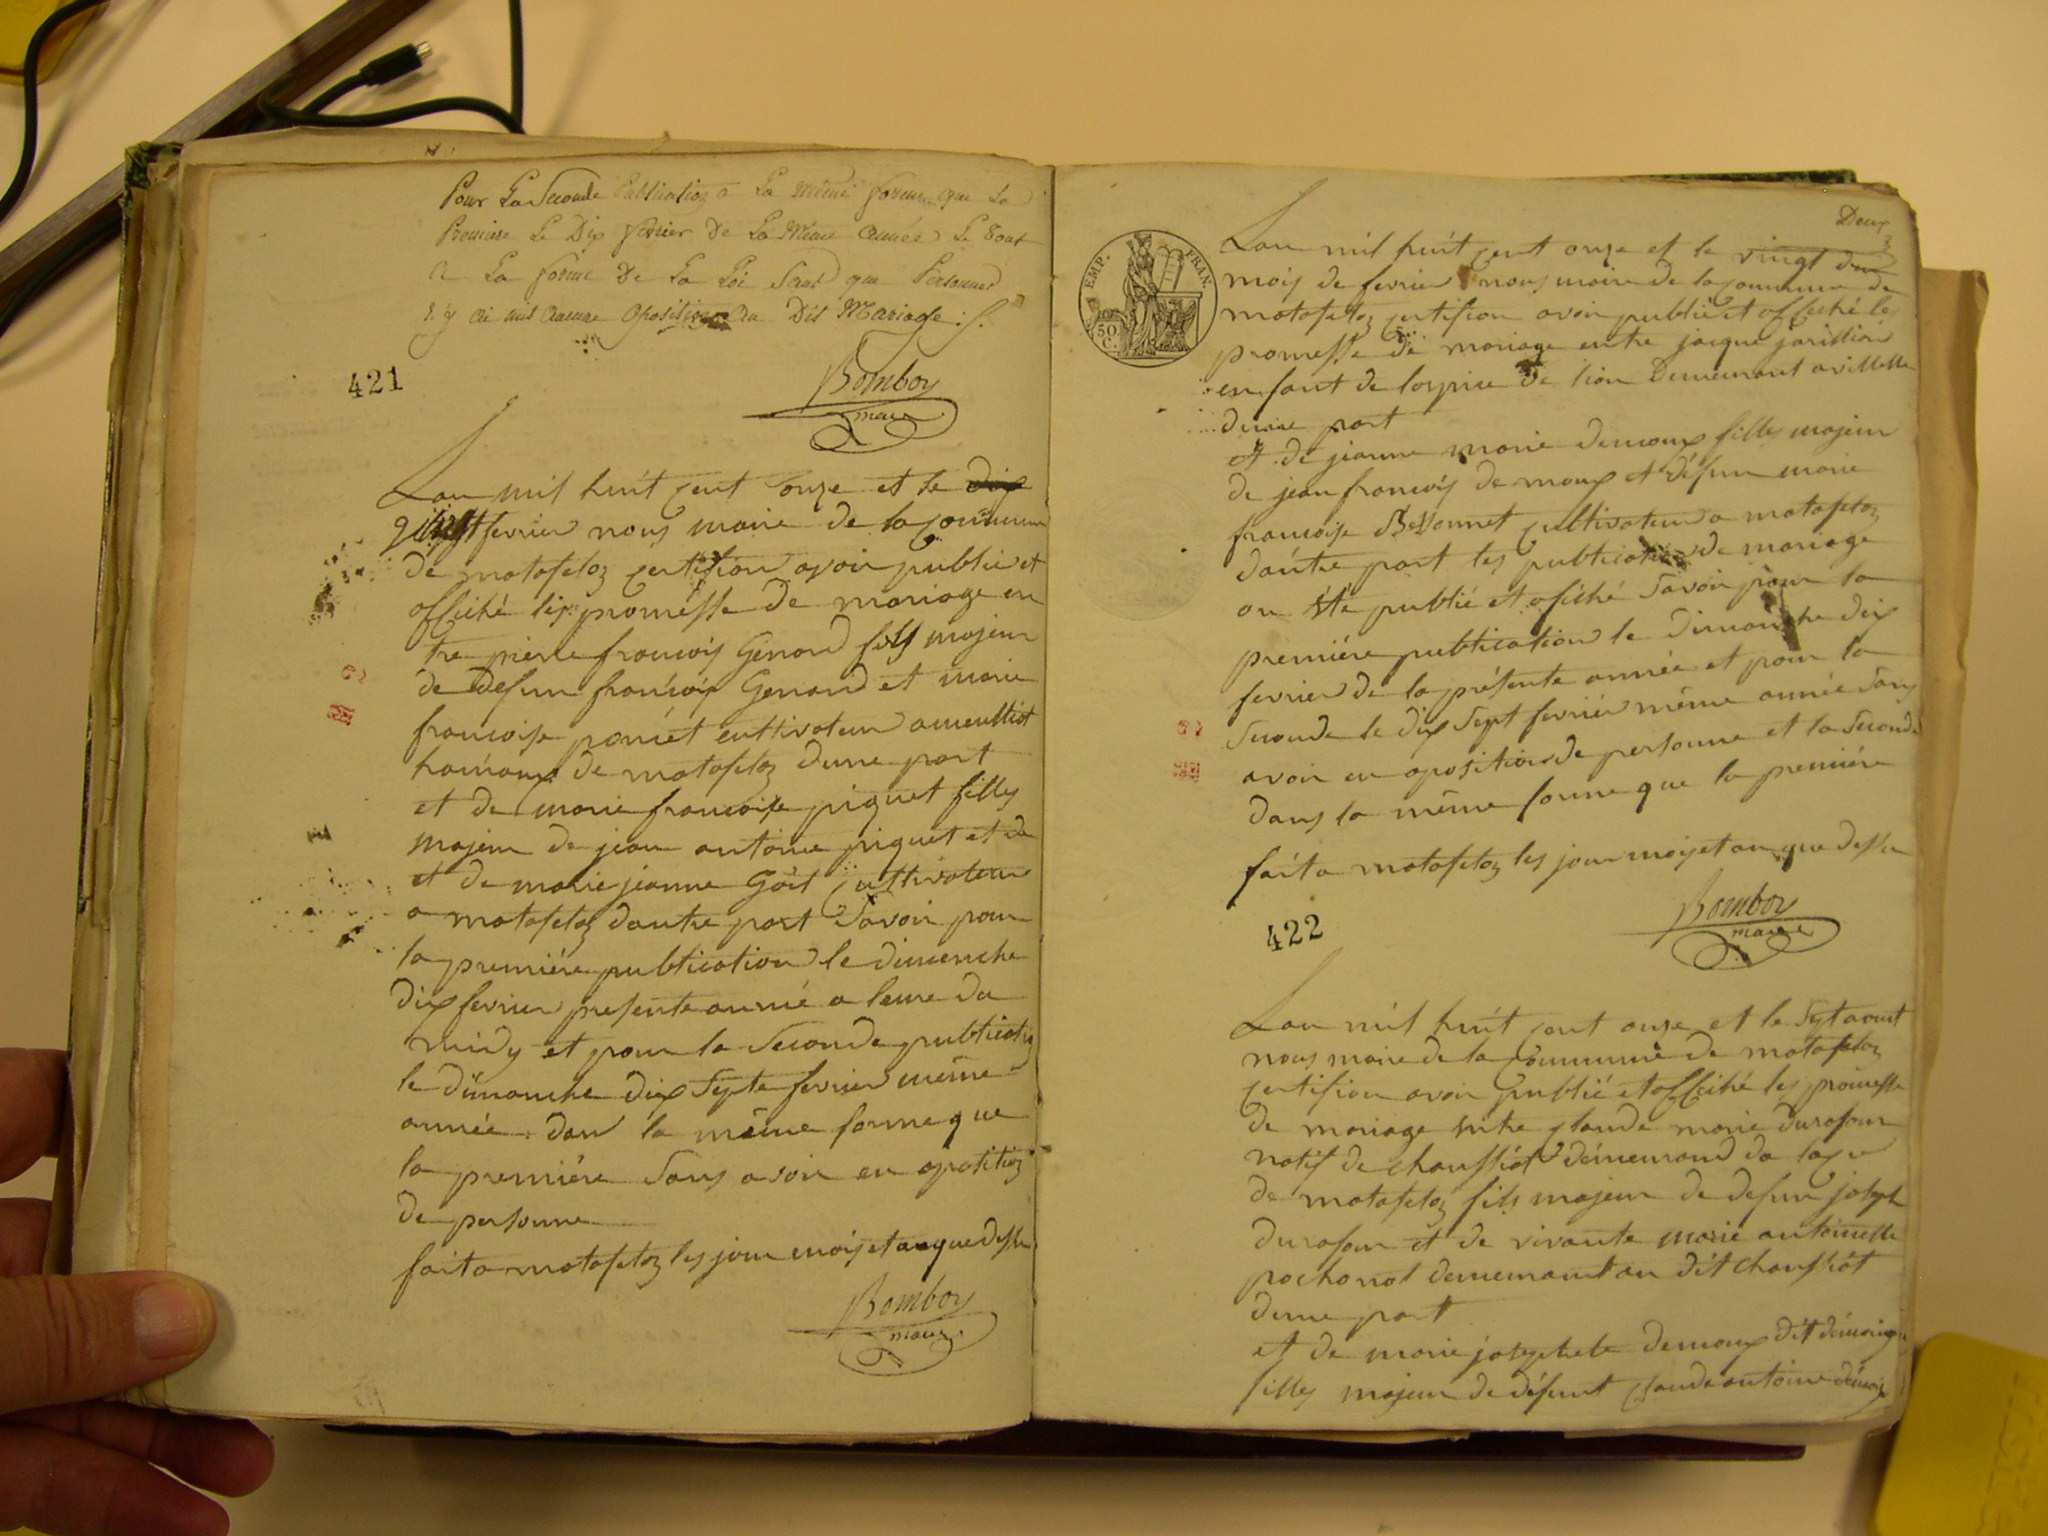 Pour La Seconde Publication a La Même forme que La
Premiere Le Dix fevrier De La Même année Le Tout
La forme De La Loi Sans que Personne
n'y ai mis Aucune Oposition au Dit Mariage
Bomboy
maire
421
Lan mil huit cent onze et le dix
fevrier nous maire de la commune
de matafelon certifion avoir publié et
affiché les promesse de mariage en
tre pierre francois Genard fils majeur
de defun francois Genard et marie
francoise poncet cultivateur
hameaux de matafelon dune part
et de marie francoise piquet filles
majeur de jean antoine piquet et de
et de marie jeanne Goit cultivateur
a matafelon dautre part Savoir pour
la première publication le dimenche
dix fevrier presente anné a leure da
midy et pour la Seconde publication
le dimanche dix Septe fevrier même
année dans la même forme que
la première Sans avoir eu opotition
de personne
fait a matafelon les jour mois et an que dessu
Bomboy
maire
Deux
EMP. FRAN.
50
C.
Lan mil huit cent onze et le vingt deu
mois de fevrier nous maire de la commune de
matafelon certifion avoir publié et affiché les
promesse de mariage entre jacque
enfant de lospice de lion Demeurant a villette
dune part
et de jeanne marie demoux filles majeur
de jean francois de moux et défun marie
francoise cultivateur a matafelon
dautre part les publication de mariage
on été publié et afiché Savoir pour la
première publication le dimanche dix
fevrier de la présente année et pour la
Seconde le dix Sept fevrier même année Sans
avoir eu oposition de personne et la Seconde
dans la même forme que la première
fait a matafelon les jour mois et an que dessu
Bomboy
maire
422
Lan mil huit cent onze et le Sept aout
nous maire de la commune de matafelon
certifion avoir publié et affiché les promesse
de mariage entre claude marie durafour
natif de
de matafelon fils majeur de defun joseph
durafour et de vivante marie antoinette
demeurant au dit
dune part
et de marie josephete demoux dit
filles majeur de défunt claude antoine